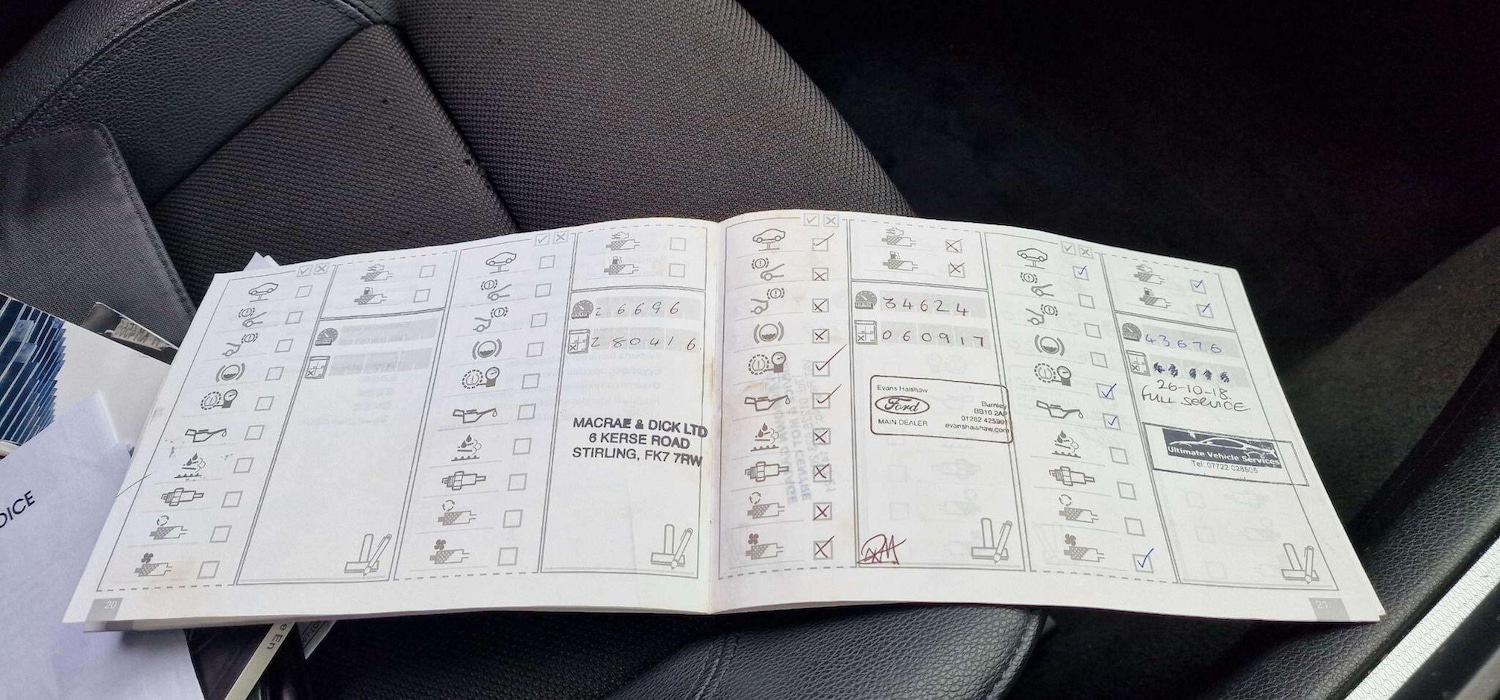 DICE
26696
280416
MACRAE & DICK LTD
6 KERSE ROAD
STIRLING, FK7 7RW
20
34624
060917
Evans Halshaw
Ford
MAIN DEALER
Burnley
BB10 2AP
01282 425991
evanshalshaw.com
43676
26-10-18.
FULL SERVICE
Ultimate Vehicle Services
Tel: 07722 028505
21